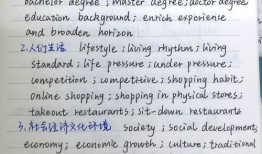 bachelor degree; master degree; doctor degree
education background; enrich experience
and broaden horizon
2.人们生活 lifestyle; living rhythm; living
standard; life pressure; under pressure;
competition; competitive; shopping habit;
online shopping; shopping in physical stores;
takeout restaurants; sit-down restaurants
3.社会经济文化环境 society; social development;
economy; economic growth; culture; traditional